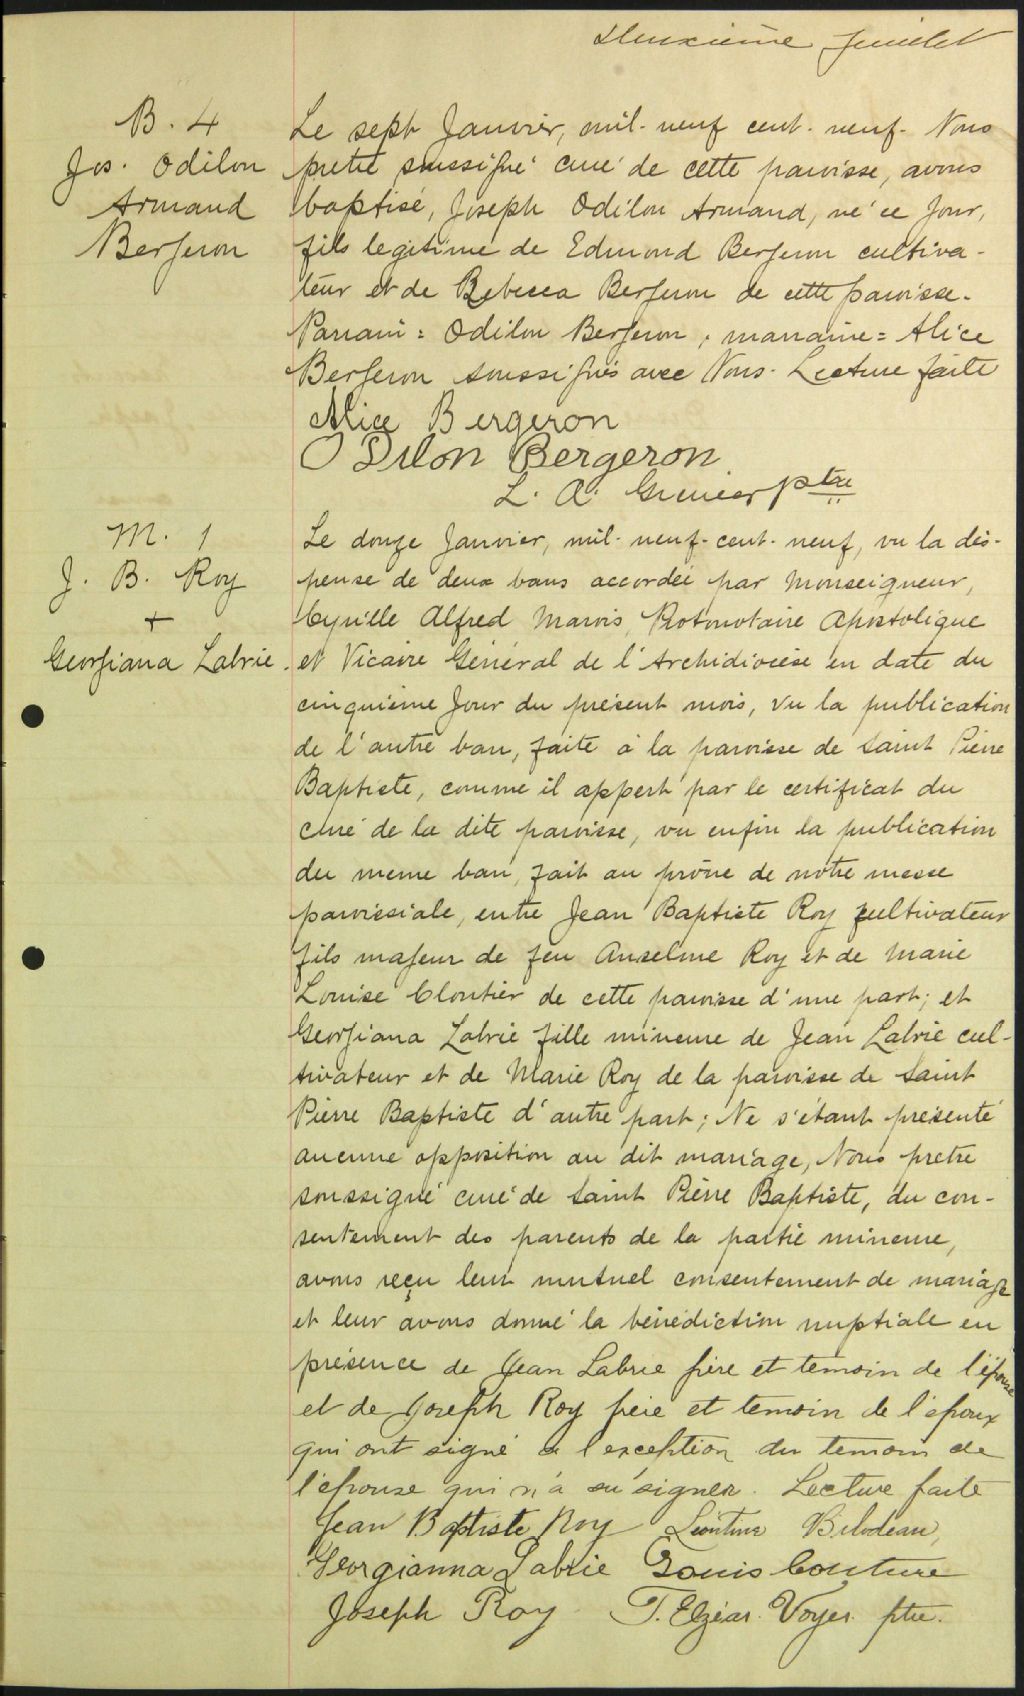 Deuxième feuillet
B. 4
Jos. Odilon
Armand
Bergeron
Le sept Janvier, mil-neuf cent-neuf- Nous
pretre soussigné curé de cette paroisse, avons
baptisé, Joseph Odilon Armand, né ce jour,
fils legitime de Edmond Bergeron cultiva-
teur et de Rebecca Bergeron de cette paroisse.
Parrain = Odilon Bergeron, marraine = Alice
Bergeron soussignés avec Nous. Lecture faite
Alice Bergeron
ODilon Bergeron
L. A. Grenier ptre
M. 1
J. B. Roy
+
Georgiana Labrie.
Le douze Janvier, mil-neuf-cent-neuf, vu la dis-
pense de deux bans accordée par Monseigneur,
Cyrille Alfred Marois, Protonotaire Apostolique
et Vicaire Général de l'Archidiocèse en date du
cinquième jour du présent mois, vu la publication
de l'autre ban, faite à la paroisse de Saint Pierre
Baptiste, comme il appert par le certificat du
curé de la dite paroisse, vu enfin la publication
du meme ban, fait au prône de notre messe
paroissiale, entre Jean Baptiste Roy cultivateur
fils majeur de feu Anselme Roy et de Marie
Louise Cloutier de cette paroisse d'une part; et
Georgiana Labrie fille mineure de Jean Labrie cul-
tivateur et de Marie Roy de la paroisse de Saint
Pierre Baptiste d'autre part; Ne s'étant présenté
aucune opposition au dit mariage, Nous pretre
soussigné curé de Saint Pierre Baptiste, du con-
sentement des parents de la partie mineure,
avons reçu leur mutuel consentement de mariage
et leur avons donné la bénédiction nuptiale en
présence de Jean Labrie père et temoin de l'épouse
et de Joseph Roy frère et temoin de l'epoux
qui ont signé à l'exception du temoin de
l'épouse qui n'a su signer. Lecture faite
Jean Baptiste Roy Léontine Bilodeau,
Georgianna Labrie Louis Couture
Joseph Roy T. Elzéar Voyer ptre.